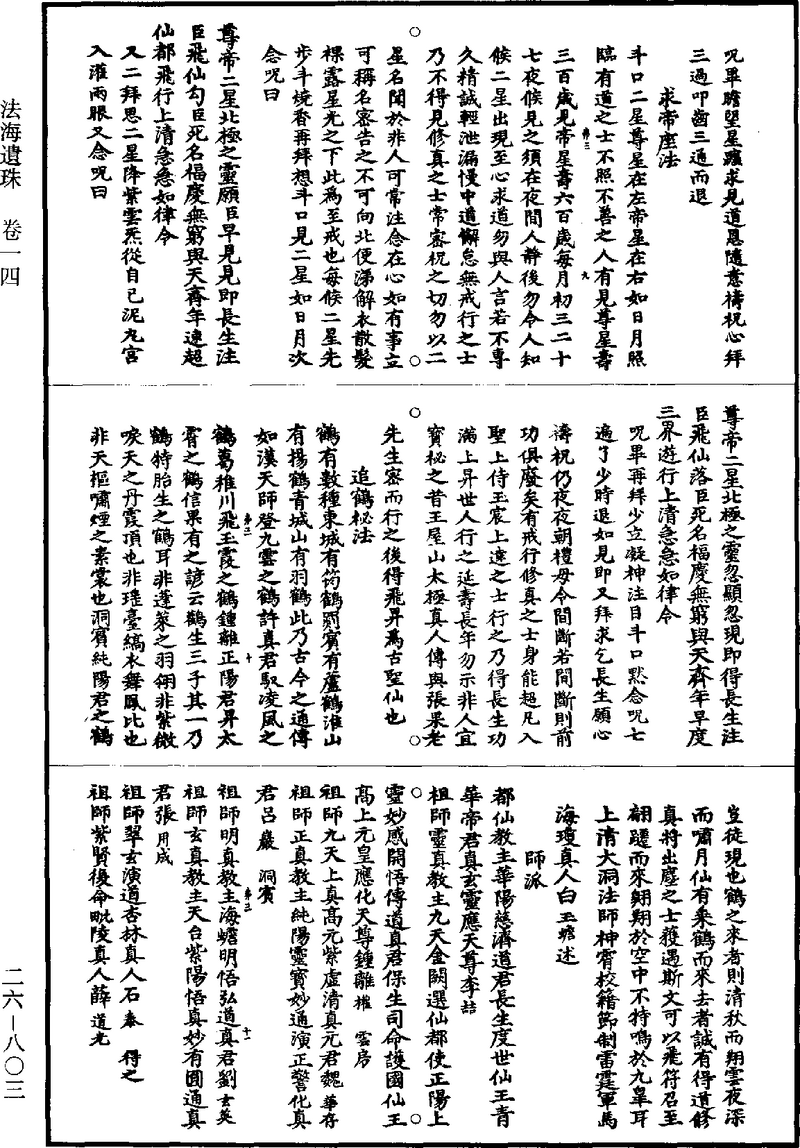 法海遺珠　卷一四
二六—八〇三
咒畢瞻望星躔求見道恩隨意禱祝心拜
三過叩齒三通而退
求帝座法
斗口二星尊星在左帝星在右如日月照
臨有道之士不照不善之人有見尊星壽
三百歲見帝星壽六百歲每月初三二十
七夜候見之須在夜間人靜後勿令人知
候二星出現至心求道勿與人言若不專
久精誠輕泄漏慢中道懈怠無戒行之士
乃不得見修真之士常審祝之切勿以二
星名聞於非人可常注念在心如有事立
可稱名密告之不可向北便溺解衣散髮
裸露星光之下此為至戒也每候二星先
步斗燒香再拜想斗口見二星如日月次
念咒曰
尊帝二星北極之靈願臣早見見即長生注
臣飛仙勾臣死名福慶無窮與天齊年速超
仙都飛行上清急急如律令
又二拜思二星降紫雲炁從自己泥丸宮
入灌兩眼又念咒曰
尊帝二星北極之靈忽顯忽現即得長生注
臣飛仙落臣死名福慶無窮與天齊年早度
三界遊行上清急急如律令
咒畢再拜少立凝神注目斗口默念咒七
遍了少時退如見即又拜求乞長生願心
禱祝仍夜夜朝禮毋令間斷若間斷則前
功俱廢矣有戒行修真之士身能超凡入
聖上侍玉宸上達之士行之乃得長生功
滿上昇世人行之延壽長年勿示非人宜
寶秘之昔王屋山太極真人傳與張果老
先生密而行之後得飛昇為古聖仙也
追鶴秘法
鶴有數種東城有筠鶴罽賓有蘆鶴淮山
有揚鶴青城山有羽鶴此乃古今之通傳
如漢天師登九雲之鶴許真君馭凌風之
鶴葛稚川飛玉霞之鶴鍾離正陽君昇太
霄之鶴信果有之諺云鶴生三子其一乃
鶴特胎生之鶴耳非蓬萊之羽翎非紫微
唳天之丹霞頂也非瑤臺縞衣舞鳳比也
非天樞嘯煙之素裳也洞賓純陽君之鶴
豈徒現也鶴之來者則清秋而翔雲夜深
而嘯月仙有乘鶴而來去者誠有得道修
真將出塵之士獲遇斯文可以飛符召至
翩躚而來翱翔於空中不特鳴於九皐耳
上清大洞法師神霄校籍節制雷霆軍馬
海瓊真人白玉蟾述
師派
都仙教主華陽慈濟道君長生度世仙王青
華帝君真玄靈應天尊李喆
祖師靈真教主九天金闕選仙都使正陽上
靈妙感開悟傳道真君保生司命護國仙王
高上元皇應化天尊鍾離權　雲房
祖師九天上真高元紫虛清真元君魏華存
祖師正真教主純陽靈寶妙通演正警化真
君呂巖　洞賓
祖師明真教主海蟾明悟弘道真君劉玄英
祖師玄真教主天台紫陽悟真妙有圓通真
君張用成
祖師翠玄演道杏林真人石泰　得之
祖師紫賢復命毗陵真人薛道光